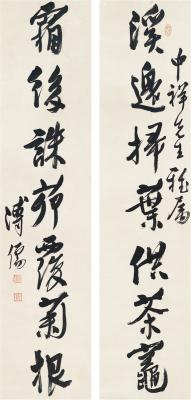 中祥先生雅屬
溪邊掃葉供茶竈
霜後誅茆覆菊根
溥儒